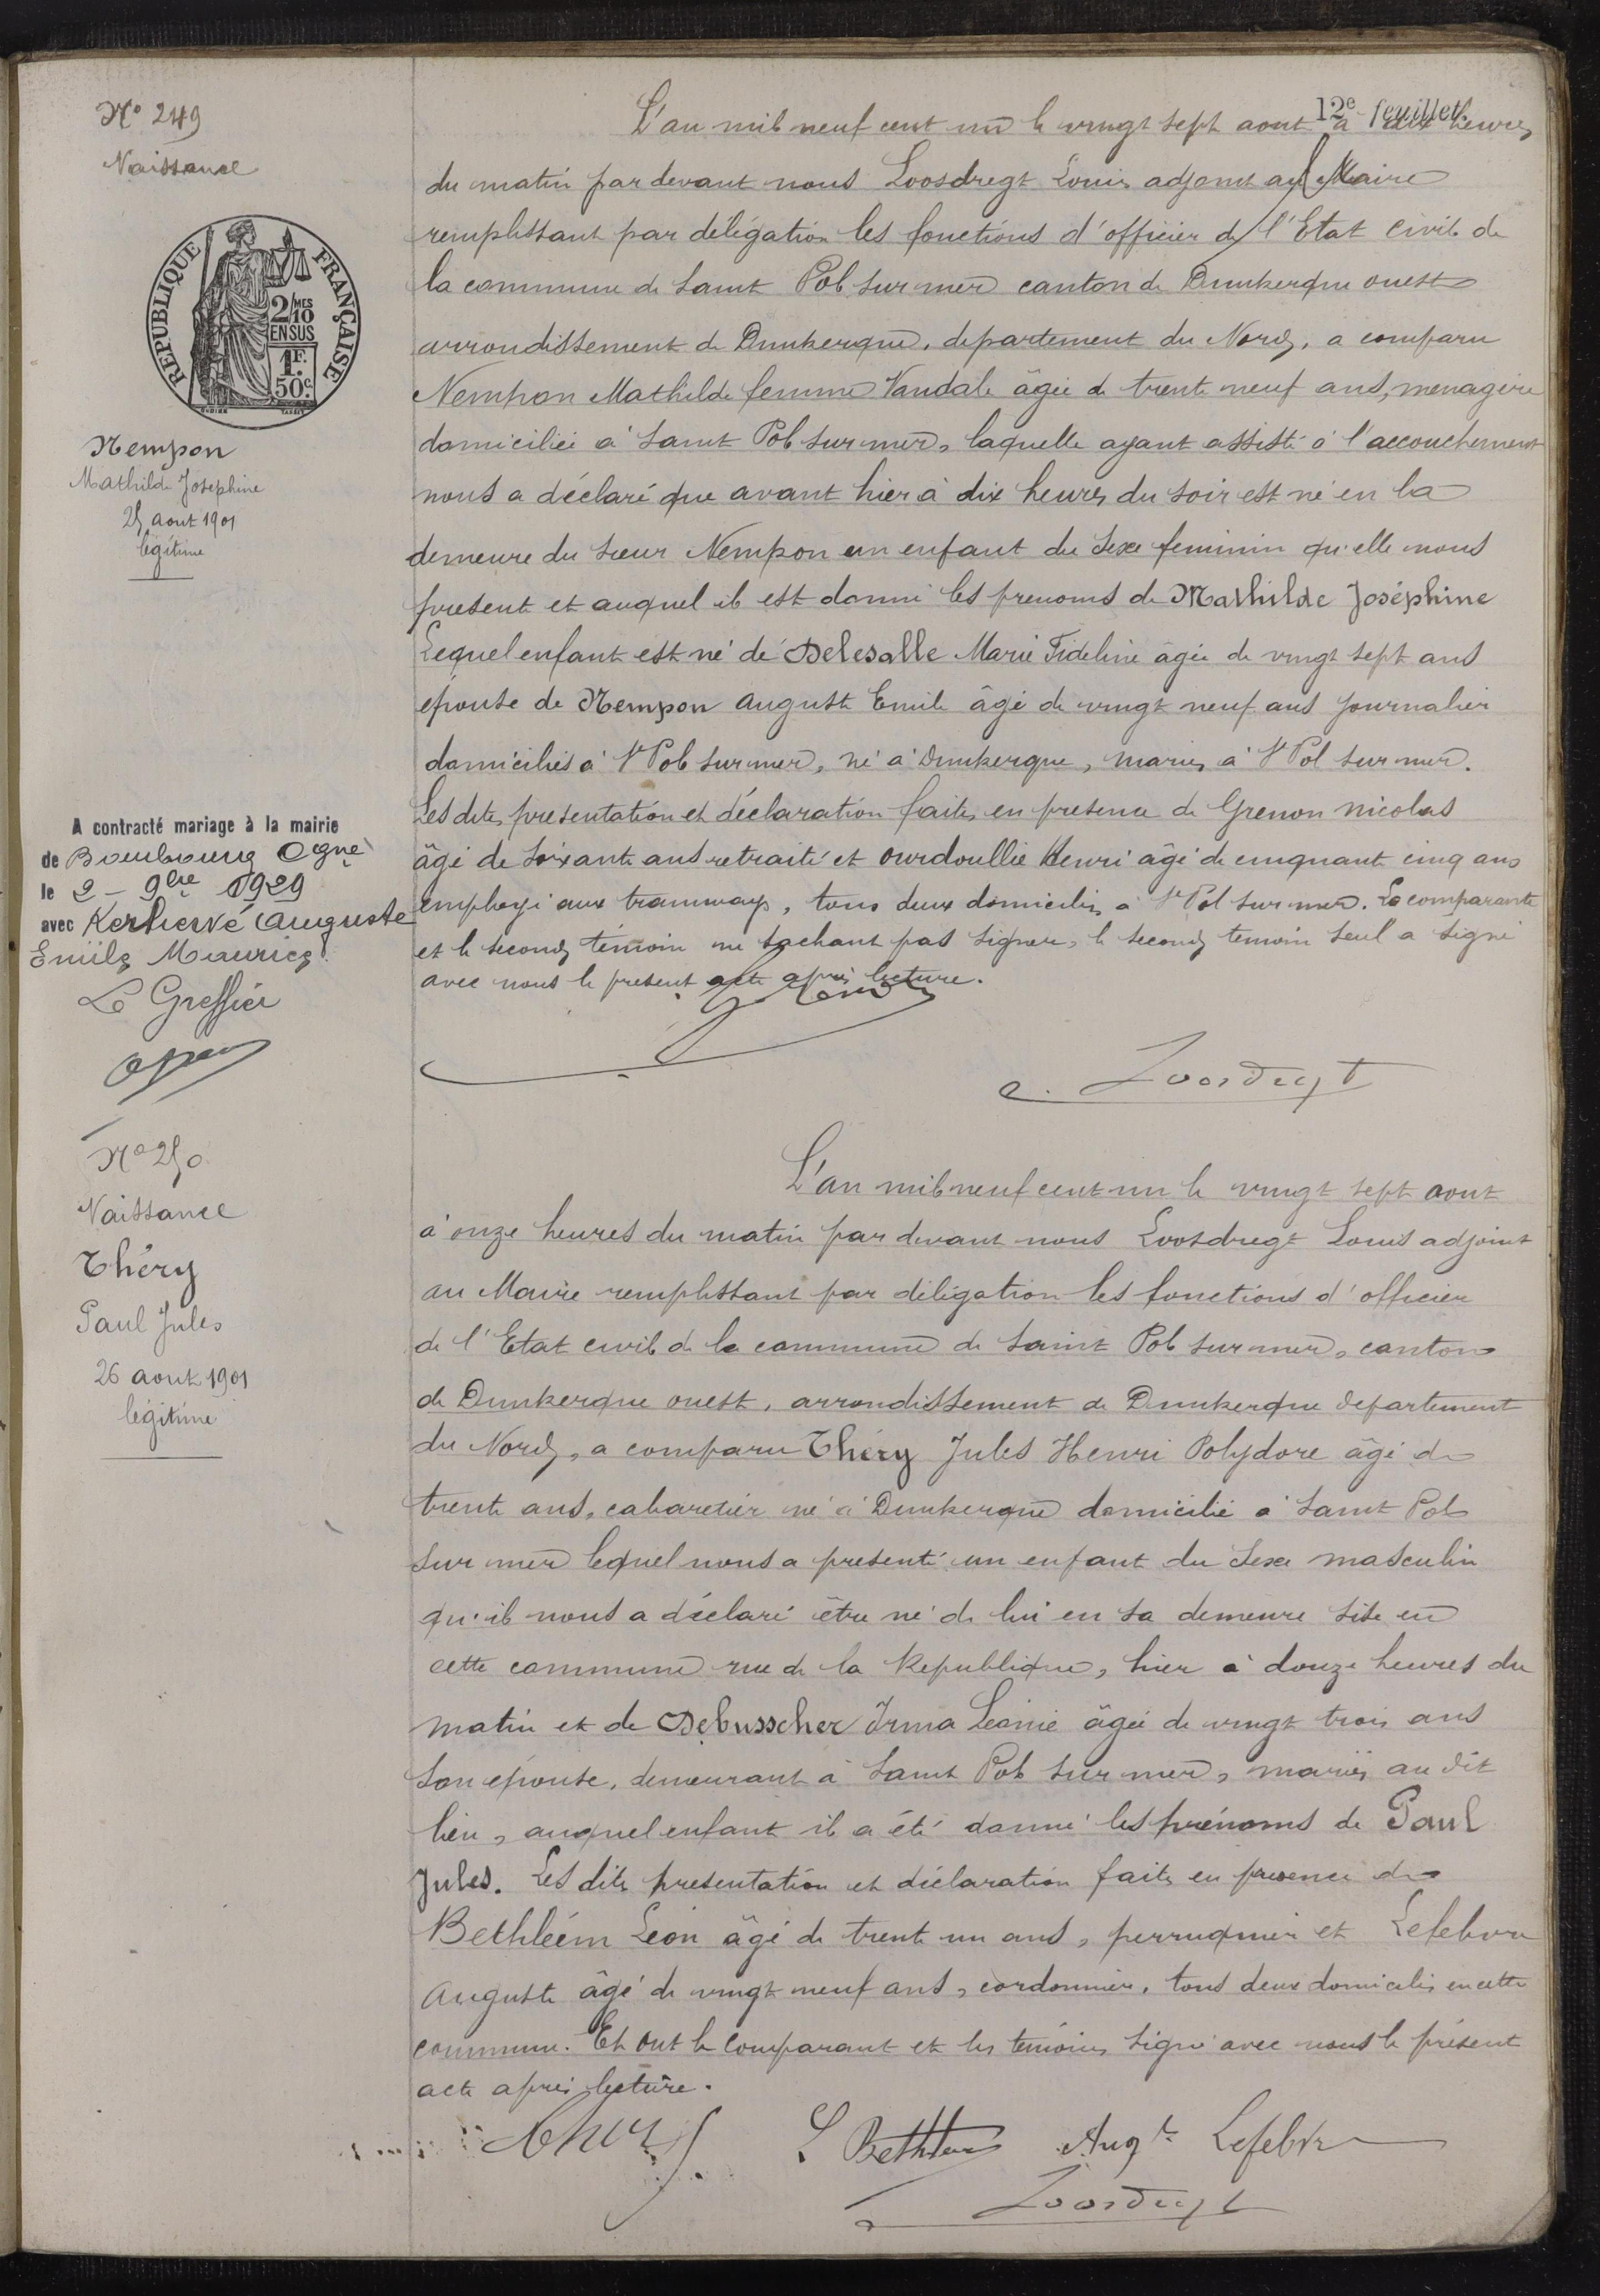 12e feuillet.
N° 249
Naissance
REPUBLIQUE FRANÇAISE
2/10 MES
EN SUS
1F.
50c.
Nempon
Mathilde Josephine
25 aout 1901
légitime
L'an mil neuf cent un le vingt sept aout à dix heures
du matin par devant nous Loosdregt Louis adjoint au Maire
remplissant par délégation les fonctions d'officier de l'Etat civil de
la commune de Saint Pol sur mer canton de Dunkerque ouest
arrondissement de Dunkerque, departement du Nord, a comparu
Nempon Mathilde femme Vandale âgée de trente neuf ans, menagère
domiciliée à Saint Pol sur mer, laquelle ayant assisté à l'accouchement
nous a déclaré que avant hier à dix heures du soir est né en la
demeure du sieur Nempon un enfant du sexe feminin qu'elle nous
present et auquel il est donné les prenoms de Mathilde Joséphine
Lequel enfant est né de Delesalle Marie Fideline âgée de vingt sept ans
épouse de Nempon Auguste Emile âgé de vingt neuf ans journalier
domiciliés à St Pol sur mer, né à Dunkerque, mariés à St Pol sur mer.
Les dites presentation et déclaration faites en presence de Grenon Nicolas
âgé de soixante ans retraité et Ourdoullié Henri âgé de cinquant cinq ans
employé aux tramways, tous deux domiciliés à St Pol sur mer. La comparante
et le second témoin ne sachant pas signer, le second temoin seul a signé
avec nous le present acte après lecture.
Loosdregt
A contracté mariage à la mairie
de Bourbourg Cgne
le 2 - 9bre 1929
avec Kerhervé Auguste
Emile Maurice
Le Greffier
N° 250
Naissance
Théry
Paul Jules
26 aout 1901
légitime
L'an mil neuf cent un le vingt sept aout
à onze heures du matin par devant nous Loosdregt Louis adjoint
au Maire remplissant par délégation les fonctions d'officier
de l'Etat civil de la commune de Saint Pol sur mer, canton
de Dunkerque ouest, arrondissement de Dunkerque departement
du Nord, a comparu Théry Jules Henri Polydore âgé de
trente ans, cabaretier né à Dunkerque domicilié à Saint Pol
sur mer lequel nous a presenté un enfant du sexe masculin
qu'il nous a déclaré être né de lui en sa demeure sise en
cette commune rue de la Republique, hier à douze heures du
matin et de Debusscher Irma Léonie âgée de vingt trois ans
son epouse, demeurant à Saint Pol sur mer, mariés au dit
lieu, auquel enfant il a été donné les prénoms de Paul
Jules. Les dites presentation et déclaration faites en presence de
Bethléem Léon âgé de trente un ans, perruquier et Lefebvre
Auguste âgé de vingt neuf ans, cordonnier, tous deux domiciliés en cette
commune. Et ont le comparant et les témoins signé avec nous le présent
acte après lecture.
Théry J.
L Bethléem
Augte Lefebvre
Loosdregt